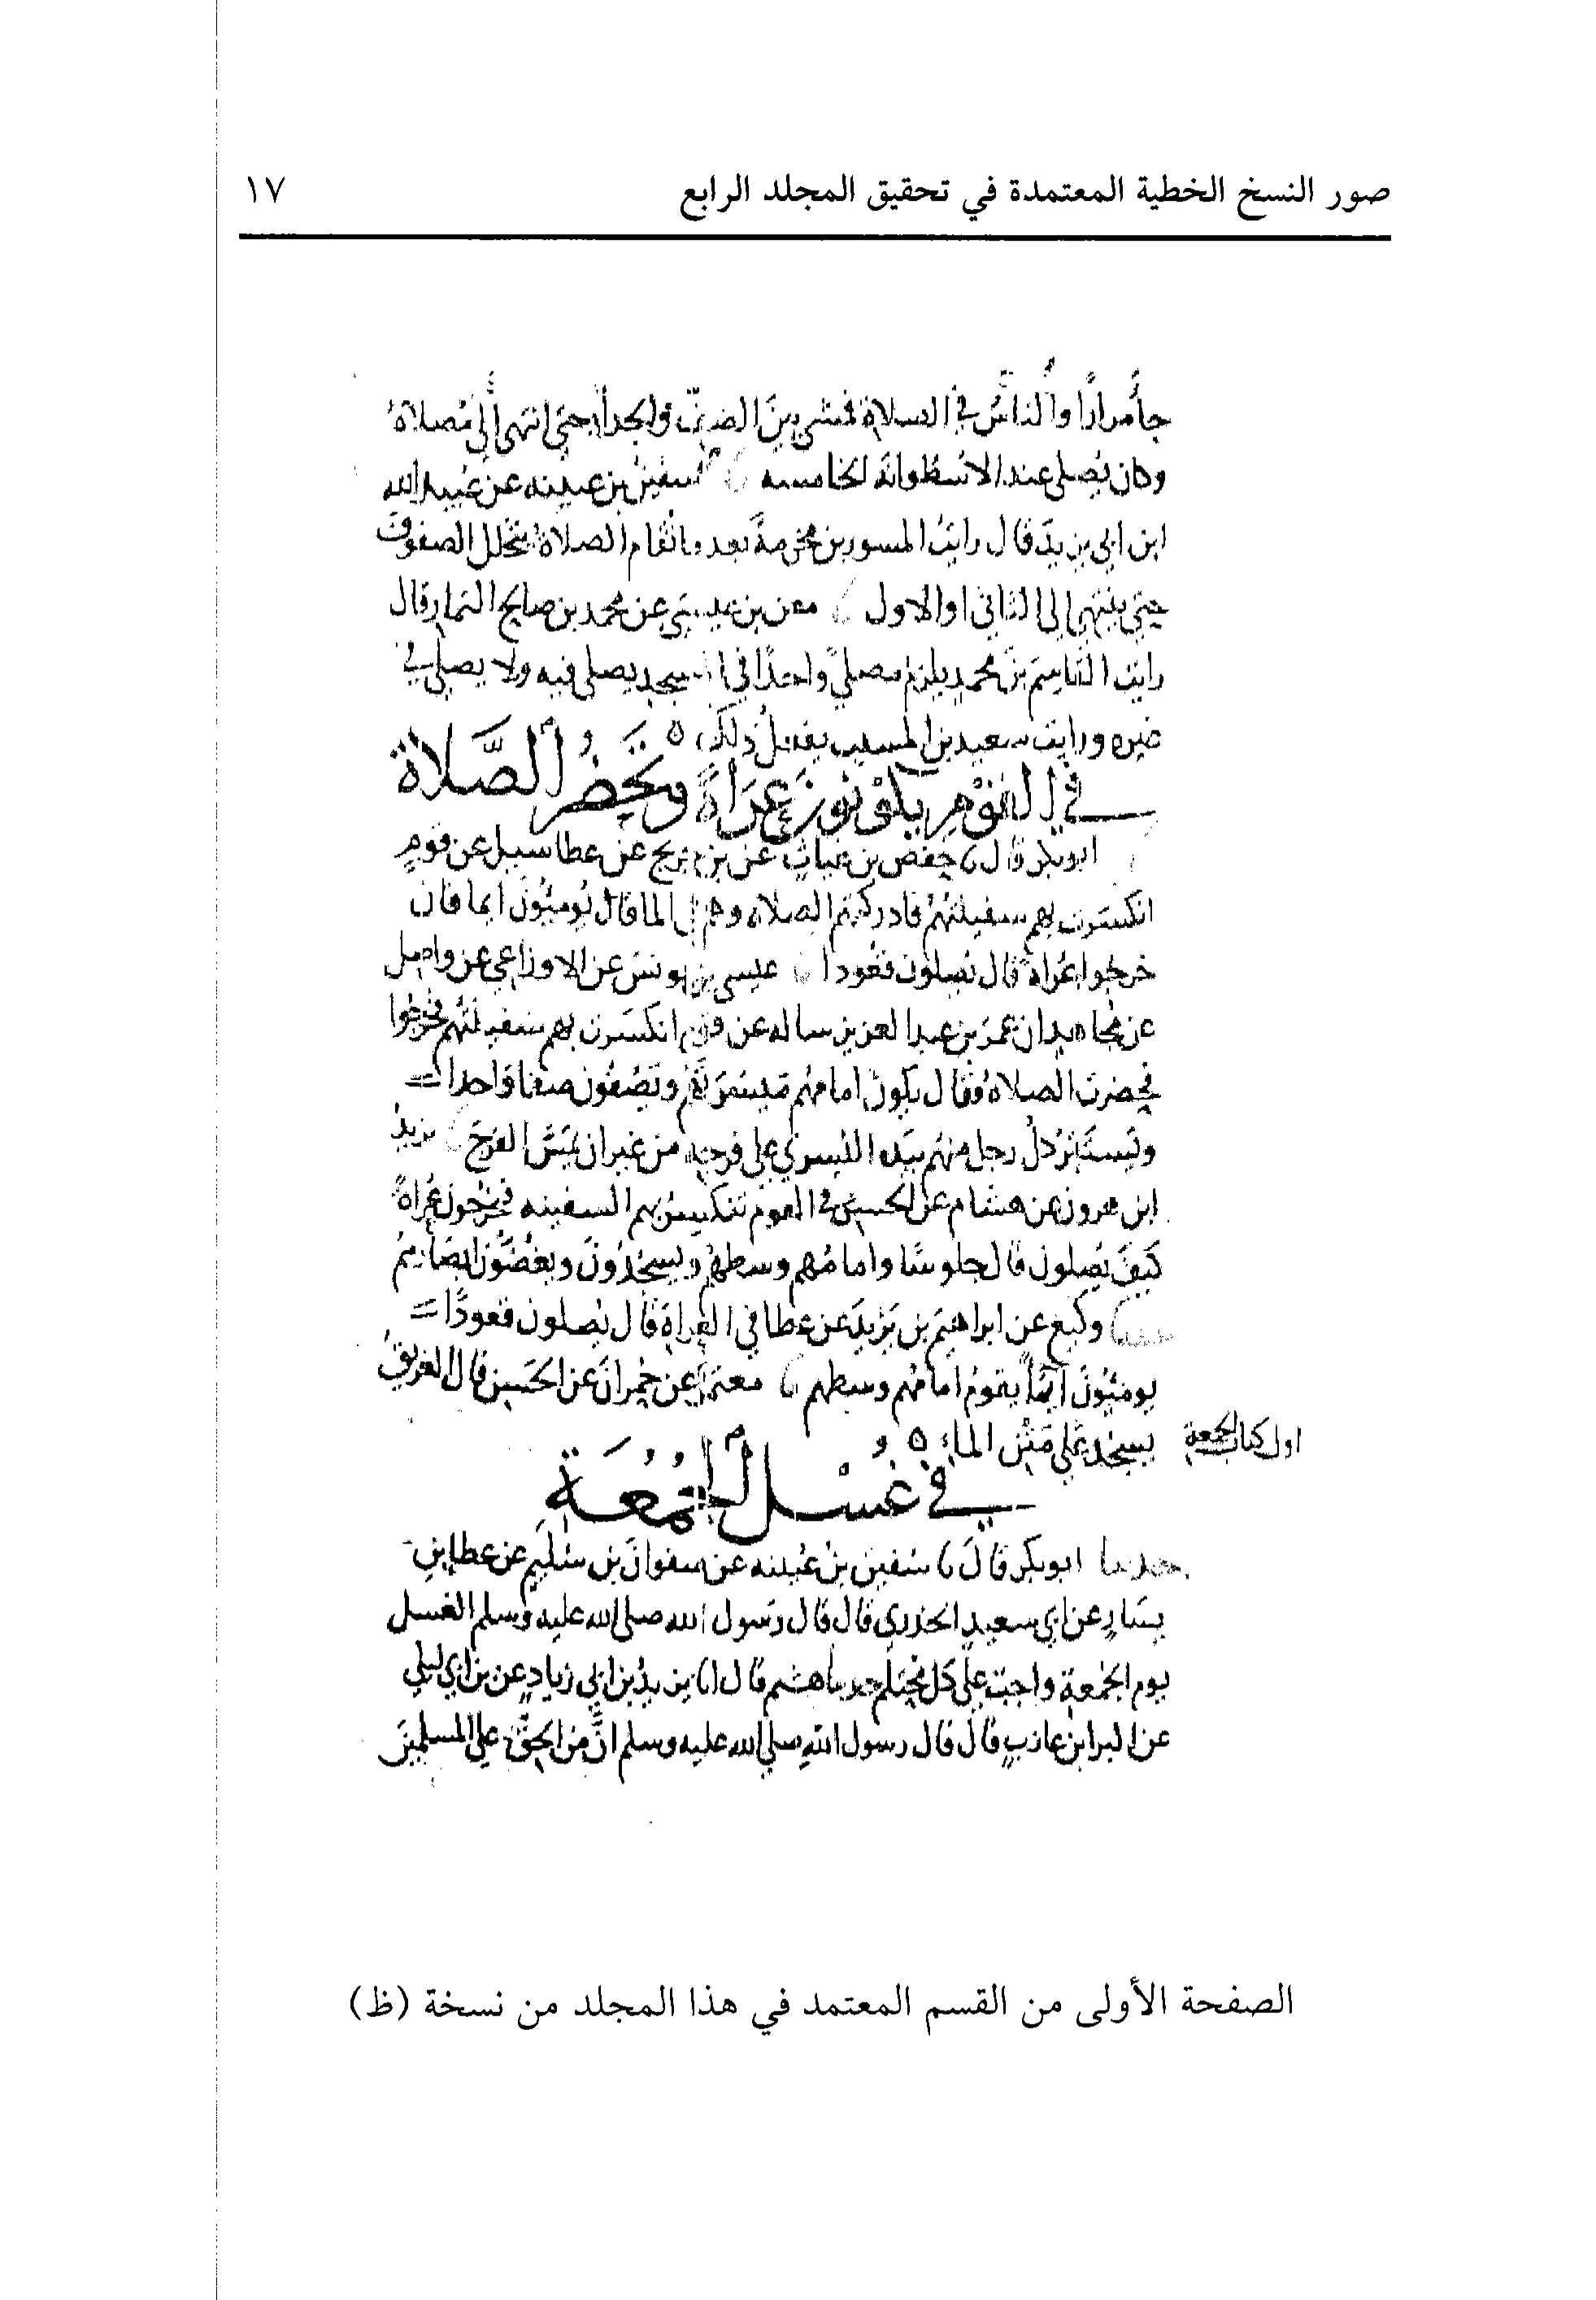 صور النسخ الخطية المعتمدة في تحقيق المجلد الرابع
١٧
جا مرارًا والناس في الصلاة فمشى بين الصف والجدار حتى انتهى إلى مصلاه
وكان يصلي عند الاسطوانة الخامسه سفين بن عيينه عن عبيد الله
ابن ابي يزيد قال رايت المسور بن مخرمة بعد ما تقام الصلاة يتخلل الصفوف
حتى ينتهي الى الثاني او الاول معن بن عيسى عن محمد بن صالح التمار قال
رايت القاسم بن محمد يلزم مصلى واحدًا في المسجد يصلي فيه ولا يصلي في
غيره ورايت سعيد بن المسيب يفعل ذلك
في القوم يكونون عراة وتحضر الصلاة
ابو بكر قال حفص بن غياث عن بن جريج عن عطا سيل عن قوم
انكسرت بهم سفينتهم فادركتهم الصلاه وهم في الما قال يومئون ايما فان
خرجوا عراة قال يصلون قعودا عيسى بن يونس عن الاوزاعي عن واصل
عن مجاهد ان عمر بن عبد العزيز ساله عن قوم انكسرت بهم سفينتهم فخرجوا
فحضرت الصلاة فقال يكون امامهم ميسرتهم ويصفون صفا واحدا
ويستتر كل رجل منهم بيده اليسرى على فرجه من غير ان يمس الفرج يزيد
ابن هرون عن هشام عن الحسن في القوم تنكسر بهم السفينه فيخرجون عراة
كيف يصلون قال جلوسًا وامامهم وسطهم ويسجدون ويغضون ابصارهم
وكيع عن ابراهيم بن يزيد عن عطا في العراة قال يصلون قعودًا
يومئون ايمًا يقوم امامهم وسطهم معتمر عن حمران عن الحسن قال الغريق
يسجد على متن الماء
اول كتاب الجمعة
في غسل الجمعة
حدثنا ابو بكر قال سفين بن عيينه عن صفوان بن سليم عن عطا بن
يسار عن ابي سعيد الخدري قال قال رسول الله صلى الله عليه وسلم الغسل
يوم الجمعة واجب على كل محتلم حدثنا هشيم قال انا يزيد بن ابي زياد عن بن ابي ليلى
عن البرا بن عازب قال قال رسول الله صلى الله عليه وسلم ان من الحق على المسلمين
الصفحة الأولى من القسم المعتمد في هذا المجلد من نسخة (ظ)